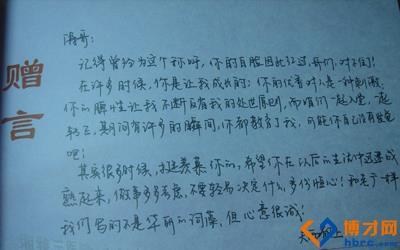 赠言
涛哥：
记得曾经为这个称呼，你的耳服因此红过，哥们，对不住！
在许多时候，你是让我成长的：你的优秀对人是一种刺激，
你的脾性让我不断反省我的处世原则，而咱们一起入党，一起
期间有许多的瞬间，你都教育了我，可能你自己没有发觉
吧！
其实很多时候，挺羡慕你的，希望你在以后的生活中迅速成
熟起来，做事多考虑，不要轻易决定什么，多份恒心！
我们写的不是华丽的词藻，但心意很诚！
博才网
hbrc.com